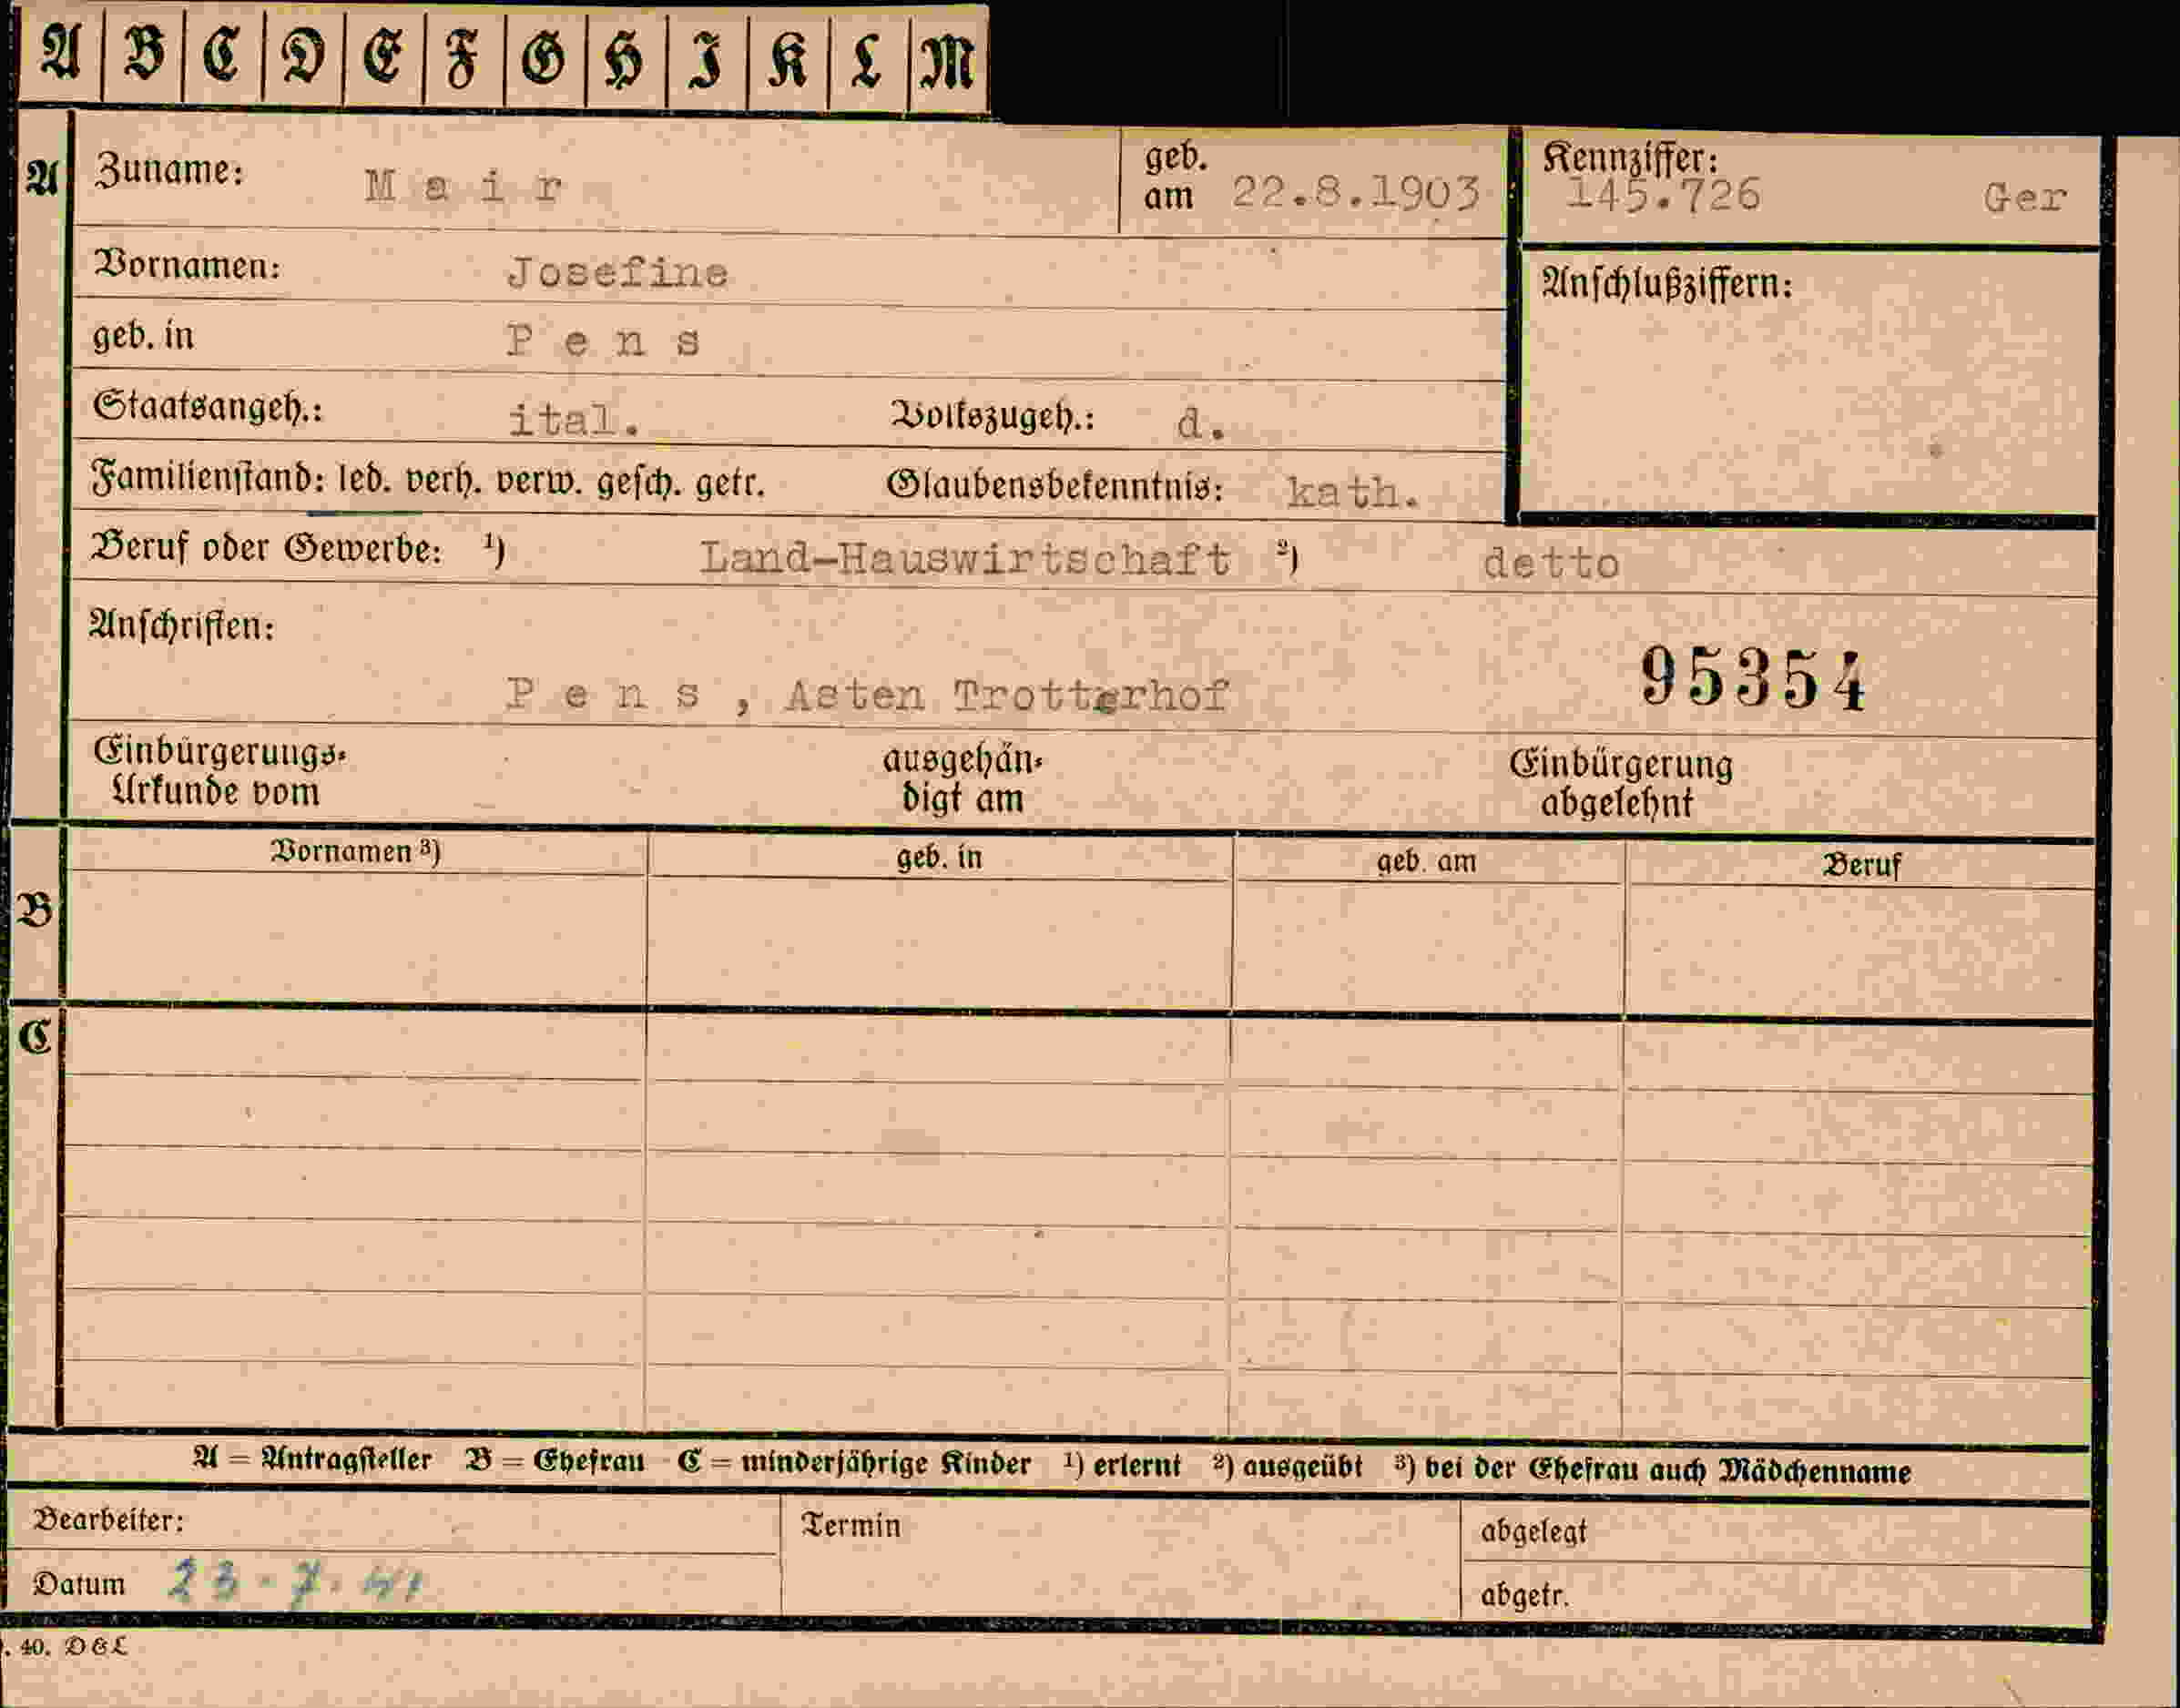 A B C D E F G H I K L M
A Zuname: Mair geb. am 22.8.1903 Kennziffer: 145.726 Ger
Vornamen: Josefine Anschlußziffern:
geb. in Pens
Staatsangeh.: ital. Volkszugeh.: d.
Familienstand: led. verh. verw. gesch. getr. Glaubensbekenntnis: kath.
Beruf oder Gewerbe: ¹) Land-Hauswirtschaft ²) detto
Anschriften:
Pens, Asten Trotterhof 95354
Einbürgerungs- ausgehän- Einbürgerung
Urkunde vom digt am abgelehnt
Vornamen ³) geb. in geb. am Beruf
B
C
A = Antragsteller B = Ehefrau C = minderjährige Kinder ¹) erlernt ²) ausgeübt ³) bei der Ehefrau auch Mädchenname
Bearbeiter: Termin abgelegt
Datum 23.7.41 abgetr.
. 40. D&L